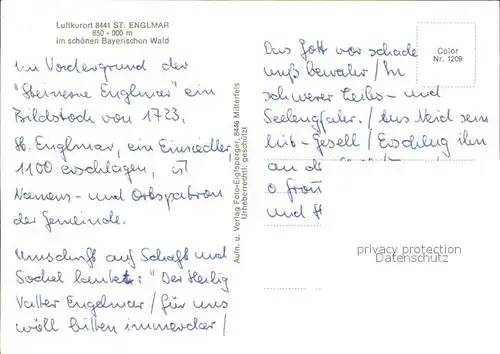 Luftkurort 8441 ST. ENGLMAR
850 - 900 m
im schönen Bayerischen Wald
Im Vordergrund der
"Steinerne Englmar" ein
Bildstock von 1723.
St. Englmar, ein Einsiedler,
1100 erschlagen, ist
Namens- und Ortspatron
der Gemeinde.
Umschrift auf Schaft und
Sockel lautet: "Der Heilig
Vatter Engelmar / für uns
wöll bitten immerdar /
Aufn. u. Verlag Foto-Eiglsperger, 8446 Mitterfels
Urheberrechtl. geschützt
Das Gott vor schade
muß bewahr / In
schwerer Leibs- und
Seelengfaler. / Aus Neid sein
Mit-Gesell / Erschlug ihn
an de
o Grou
und H
Color
Nr. 1209
privacy protection
Datenschutz